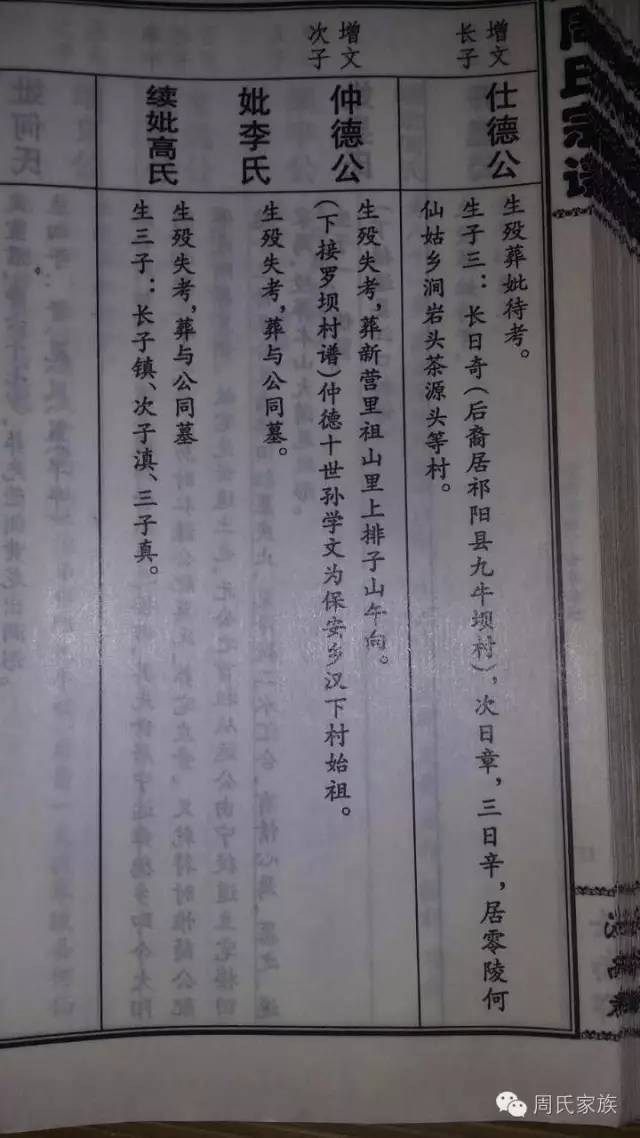 周氏宗谱
增文
长子
仕德公
生殁葬妣待考。
生子三：长日奇（后裔居祁阳县九牛坝村），次日章，三日辛，居零陵何
仙姑乡涧岩头茶源头等村。
增文
次子
仲德公
生殁失考，葬新营里祖山里上排子山午向。
（下接罗坝村谱）仲德十世孙学文为保安乡汉下村始祖。
妣李氏
生殁失考，葬与公同墓。
续妣高氏
生殁失考，葬与公同墓
生三子：长子镇、次子滇、三子真。
周氏家族